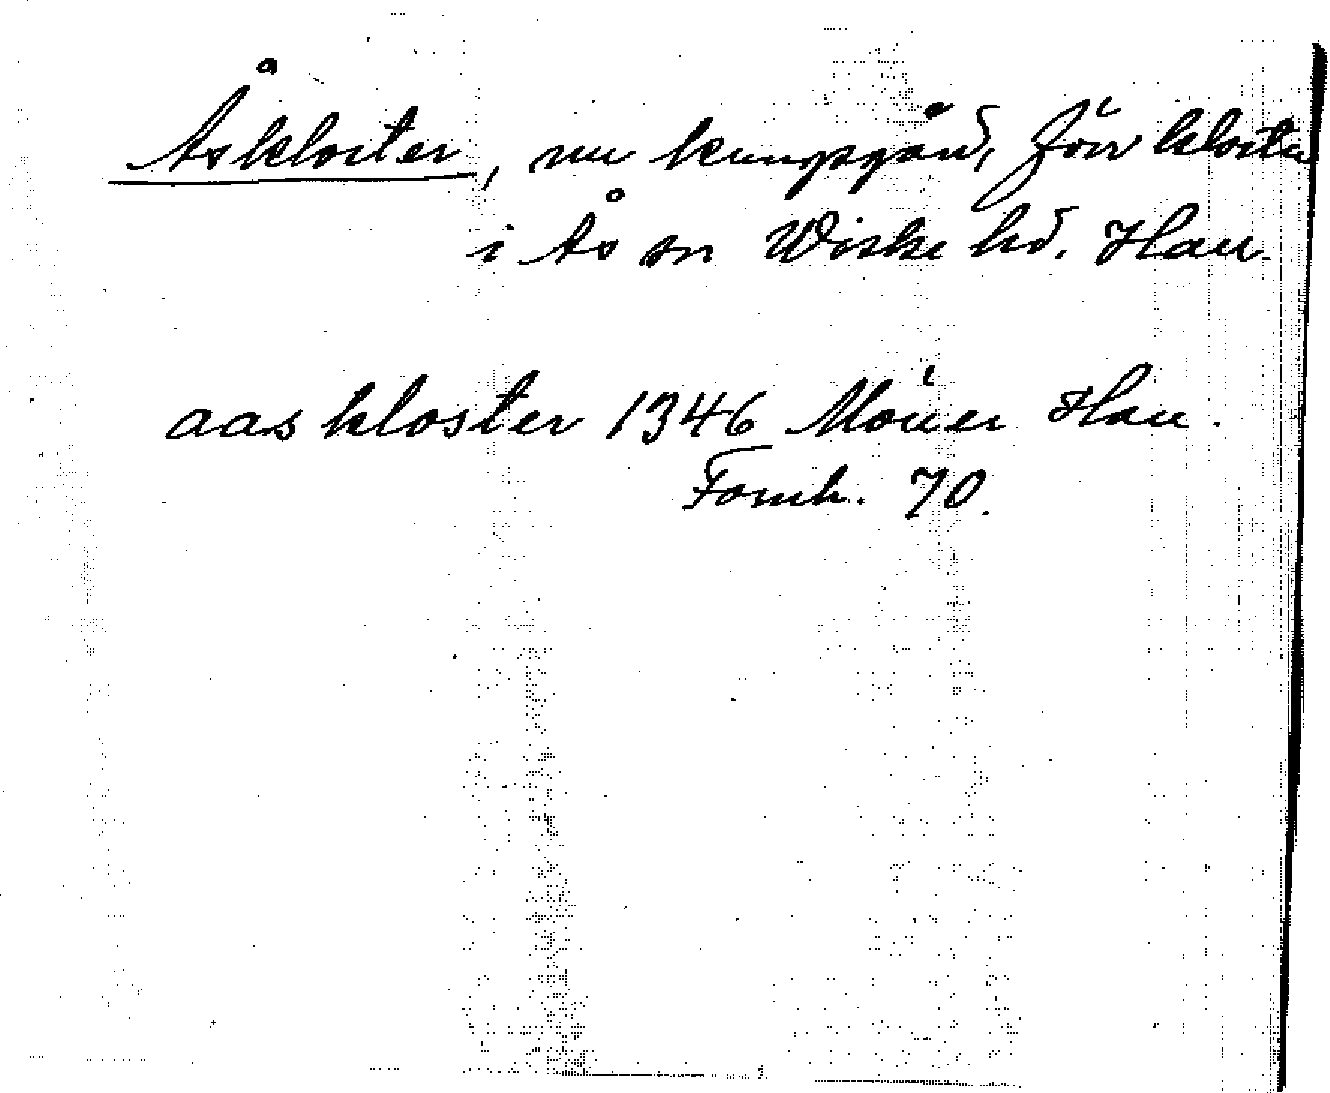 Åskloster, nu kungsgård, förr kloster
i Ås sn Wiske hd. Hall.
aas kloster 1346 Möller Hall.
Fornh. 70.